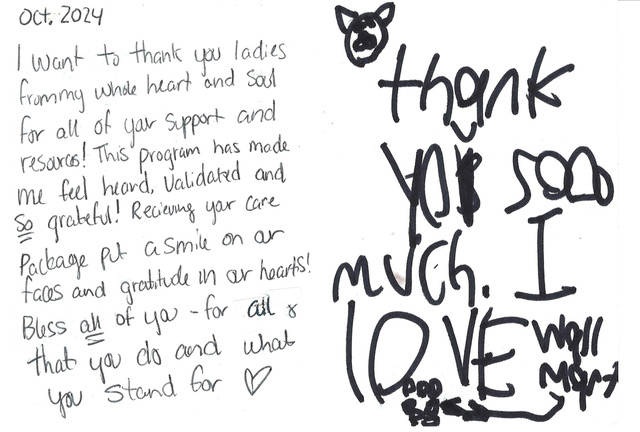 Oct. 2024
I want to thank you ladies
frommy whole heart and soul
for all of your support and
resources! This program has made
me feel heard, validated and
so grateful! Recieving your care
package put a smile on our
faces and gratitude in our hearts!
Bless all of you - for all
that you do and what
you stand for ♡
thank
you sooo
much. I
LOVE Wall
Mart